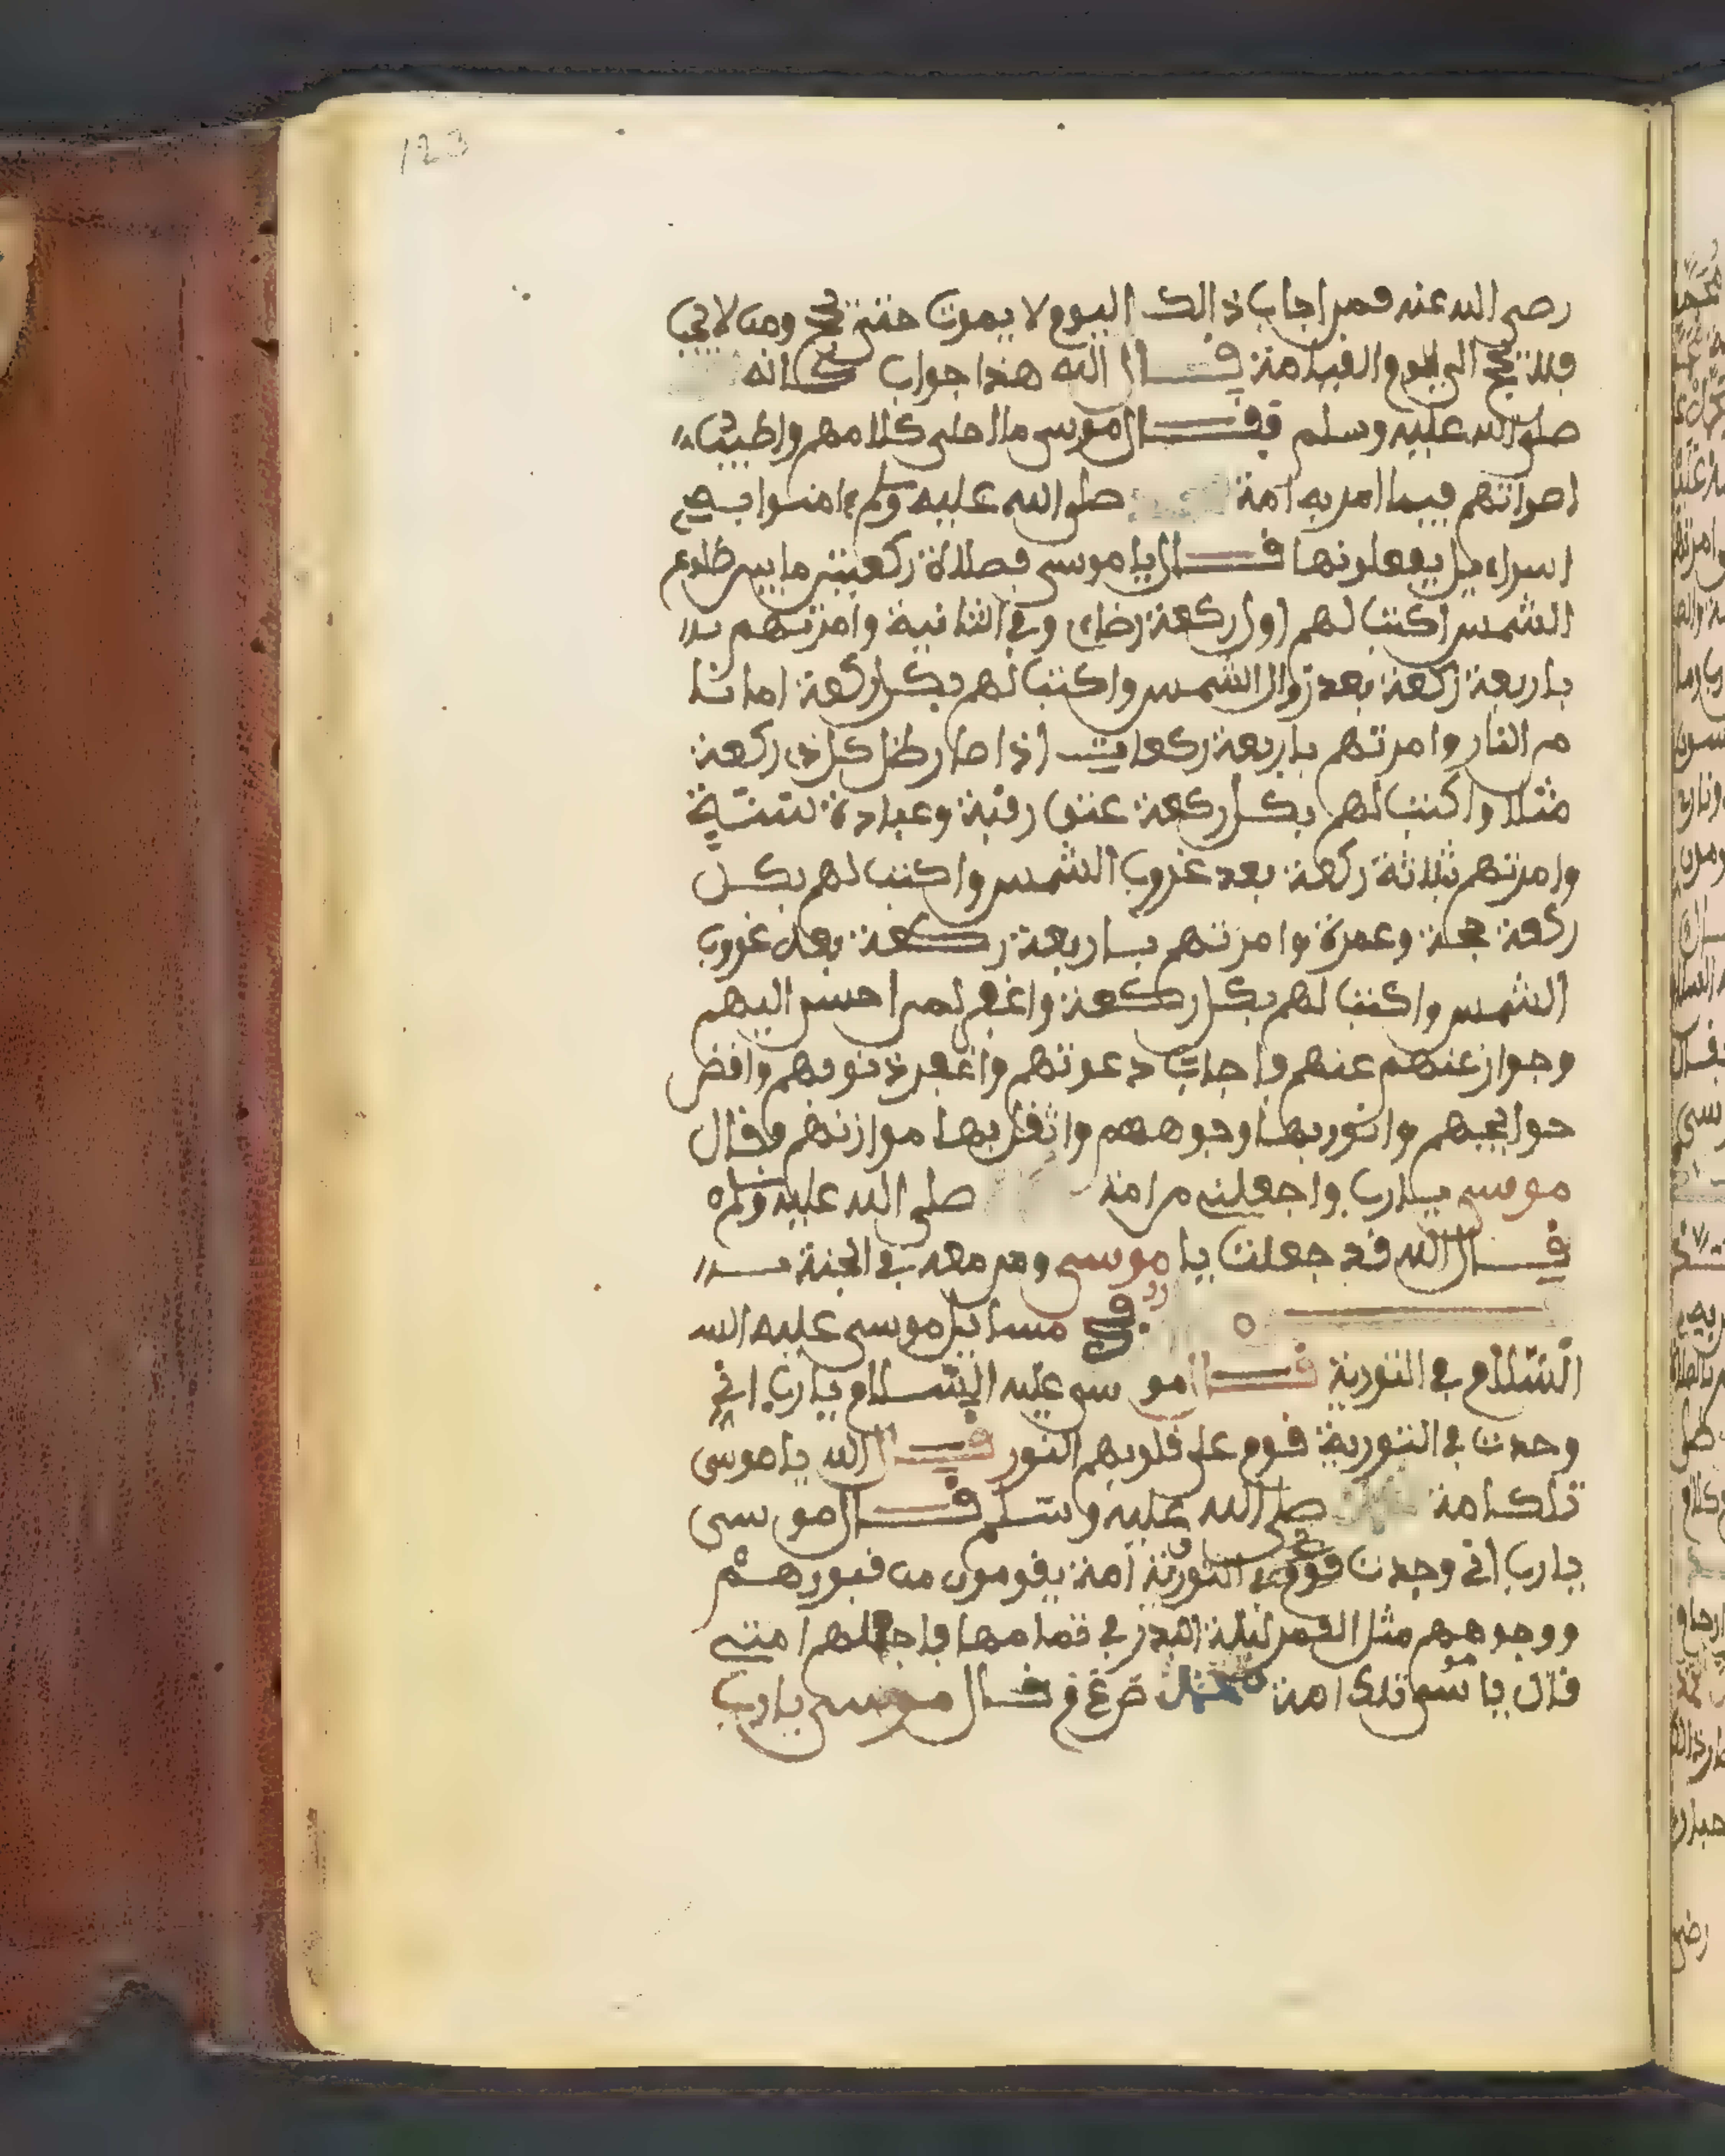 123
رضي الله عنه فمن اجاب ذالك اليوم لا يموت حتى يحج ومن لا يجب
فلا يحج الى يوم القيامة قال الله هذا جواب كانه
صلى الله عليه وسلم فقال موسى ما احلى كلامهم واطيب
اصواتهم فيما امر به امة صلى الله عليه وسلم امنوا
اسراءيل يفعلونها قال يا موسى فصلاة ركعتين ما بين طلوع
الشمس اكتب لهم اول ركعة رضاي وفي الثانية وامرتهم
باربعة ركعة بعد زوال الشمس واكتب لهم بكل ركعة امانا
من النار وامرتهم باربعة ركعات اذا صار ظل كل ذي ركعة
مثلا واكتب لهم بكل ركعة عتق رقبة وعبادة ستة
وامرتهم ثلاثة ركعة بعد غروب الشمس واكتب لهم بكل
ركعة حجة وعمرة وامرتهم باربعة ركعة بعد غروب
الشمس واكتب لهم بكل ركعة واغفر لمن احسن اليهم
وجواز عنهم عنهم واجاب دعوتهم واغفر ذنوبهم واقض
حوايجهم وانور بها وجوههم واثقل بها موازنهم وقال
موسى يارب واجعلني من امة صلى الله عليه وسلم
قال الله قد جعلت يا موسى ومن معه في الجنة
في مسايل موسى عليه الله
السلام في التورية قال موسى عليه السلام يارب اني
وجدت في التورية قوم على قلوبهم النور قال الله يا موسى
تلك امة صلى الله عليه وسلم قال موسى
يارب اني وجدت قوم في التورية امة يقومون من قبورهم
ووجوههم مثل القمر ليلة البدر في تمامها فاجعلهم امتي
قال يا موسى تلك امة قال موسى يارب